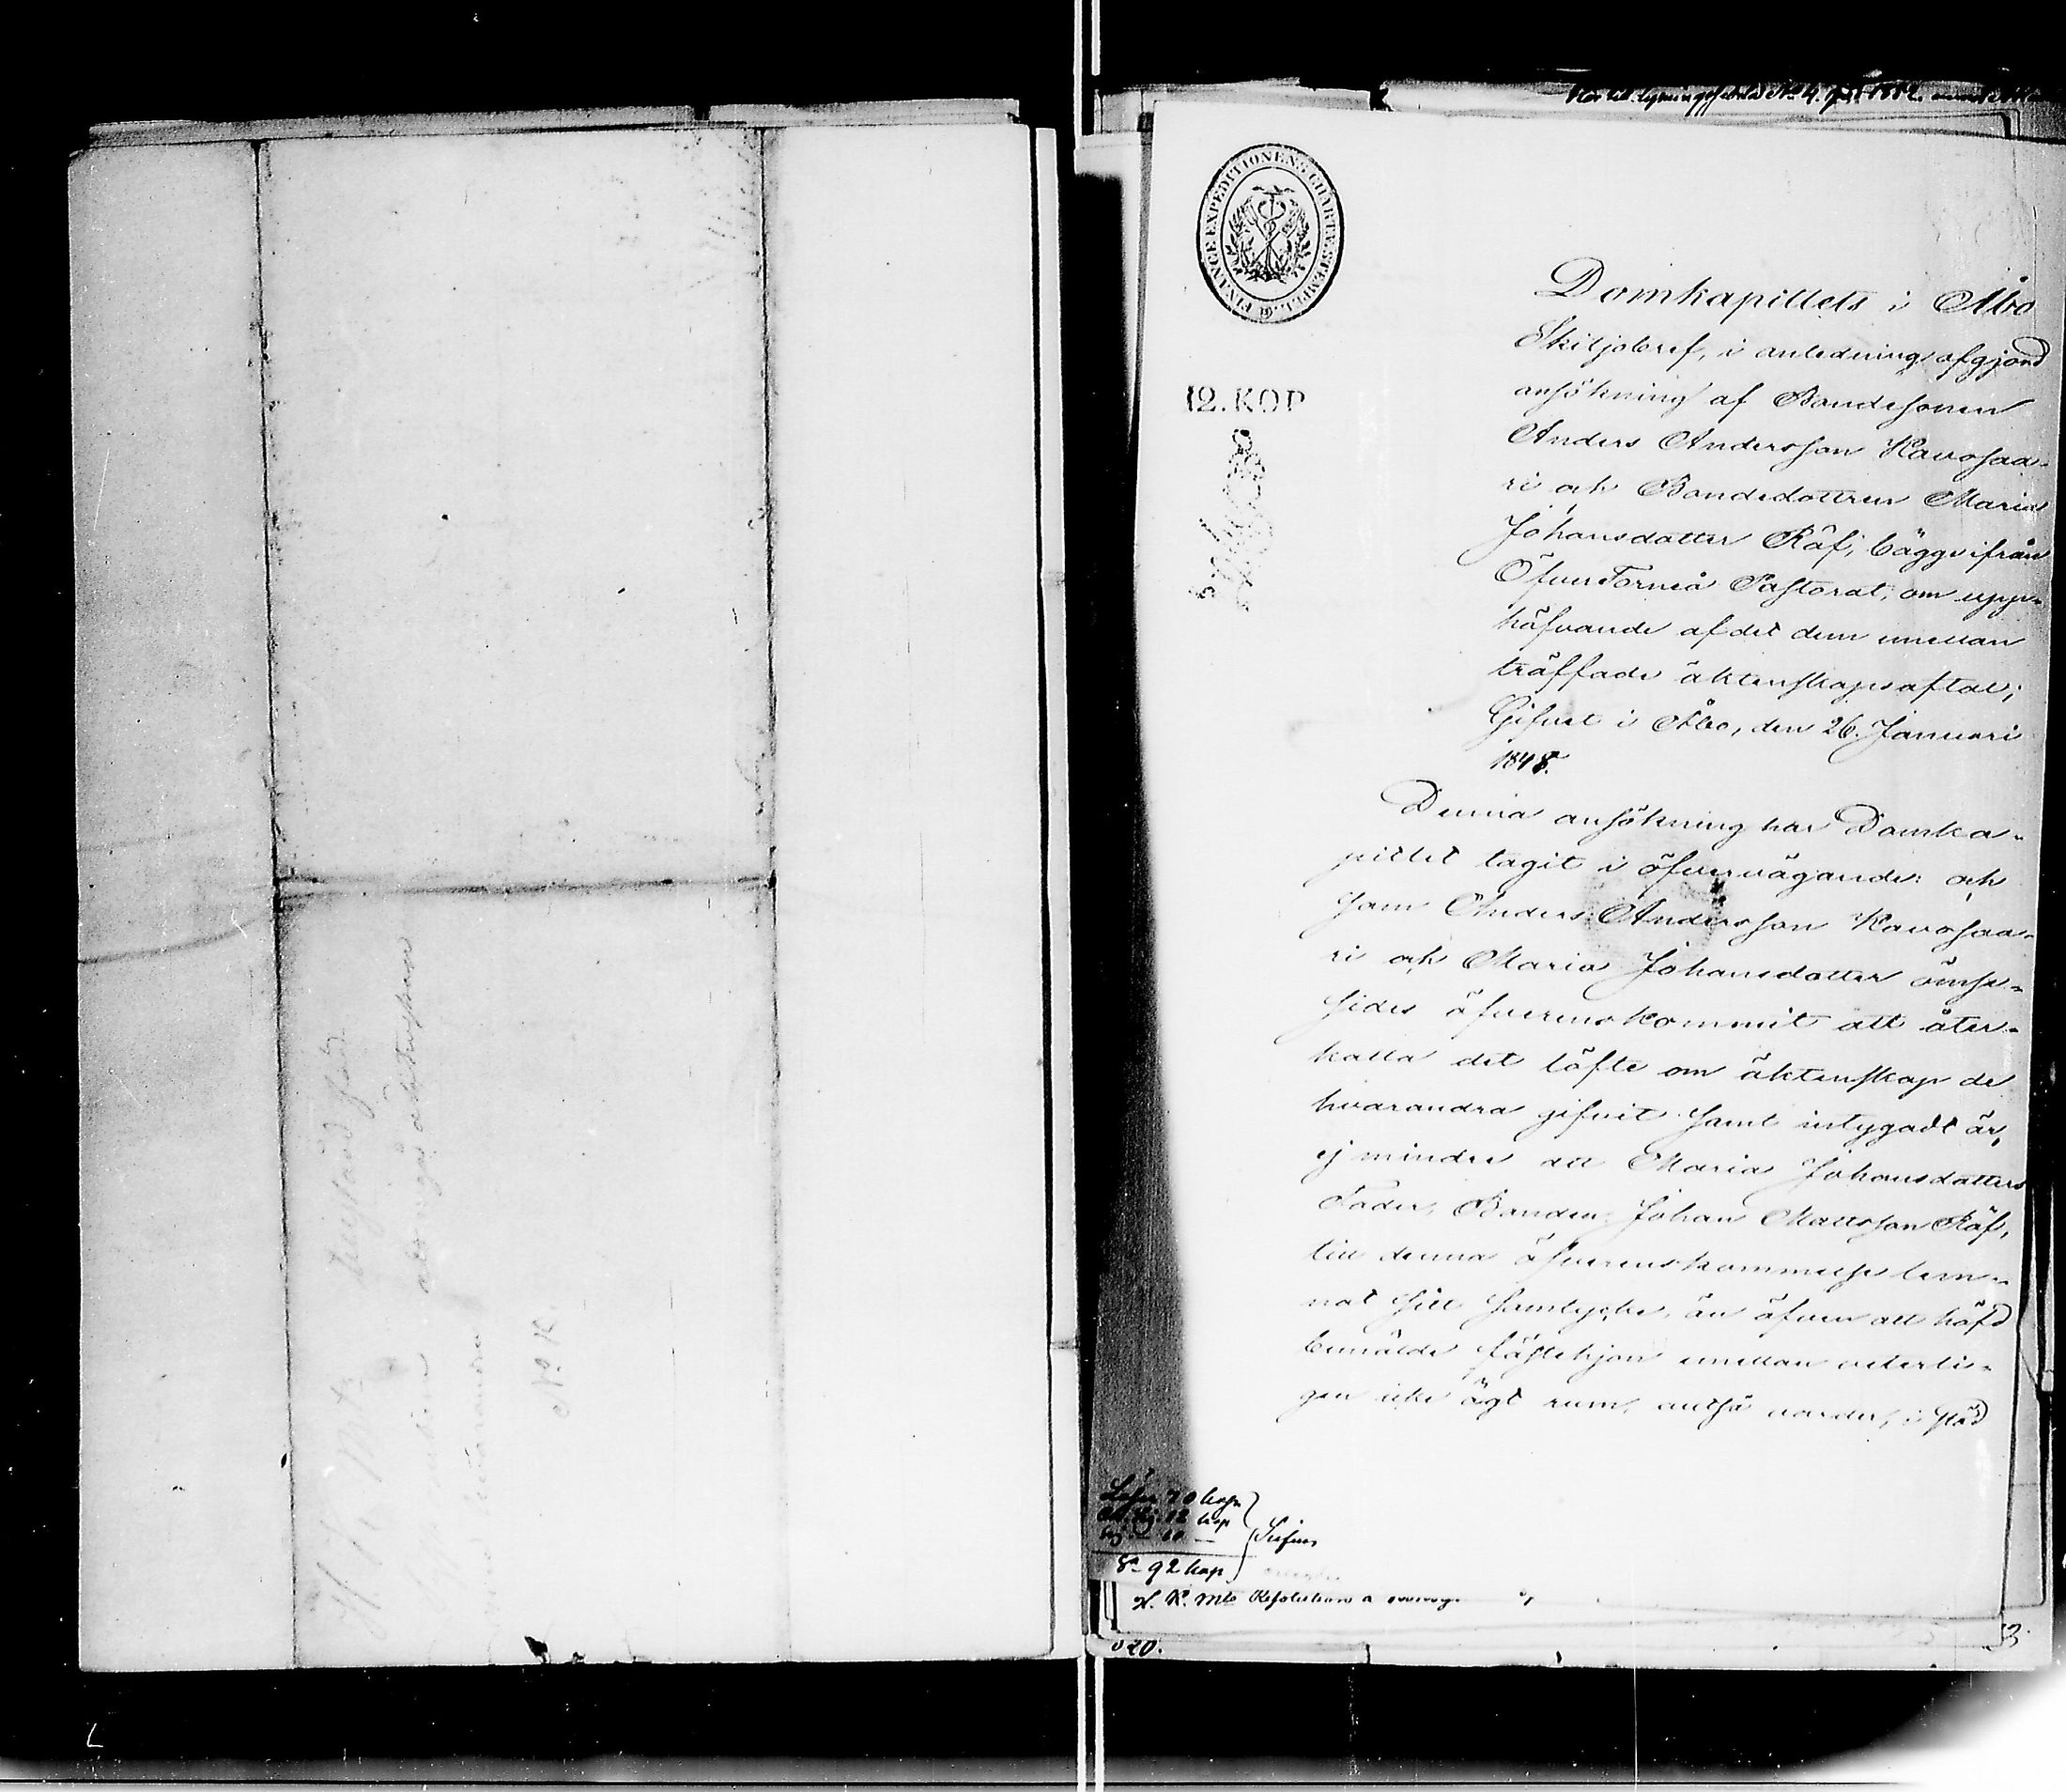 FINANCE EXPEDITIONENS CHARTÆ STEMPEL.
12. KOP
Domkapitlets i Åbo
Skiljobref, i anledning af gjord
ansökning af Bondesonen
Anders Andersson Kavosaa-
ri och Bondedottren Maria
Johansdotter Räf, bägge ifrån
ÖfverTorneå Pastorat, om upp-
häfvande af det dem emellan
träffade äktenskapsaftal;
Gifvet i Åbo, den 26. Januari
1848.
Denna ansökning har Domka-
pitlet tagit i öfvervägande: och
som Anders Andersson Kavosaa-
ri och Maria Johansdotter ömse-
sides öfverenskommit att åter-
kalla det löfte om äktenskap de
hvarandra gifvit samt intygadt är,
ej mindre att Maria Johansdotters
Fader, Bonden Johan Mattsson Räf,
till denna öfverenskommelse lem-
nat sitt samtycke, än äfven att häfd
bemälde fästehjon emellan veterli-
gen icke ägt rum, altså varder, i stöd
Lösen 70 kop
12 kop
60 —
92 kop
H. K. Mts Resolution
N:o K.
020.